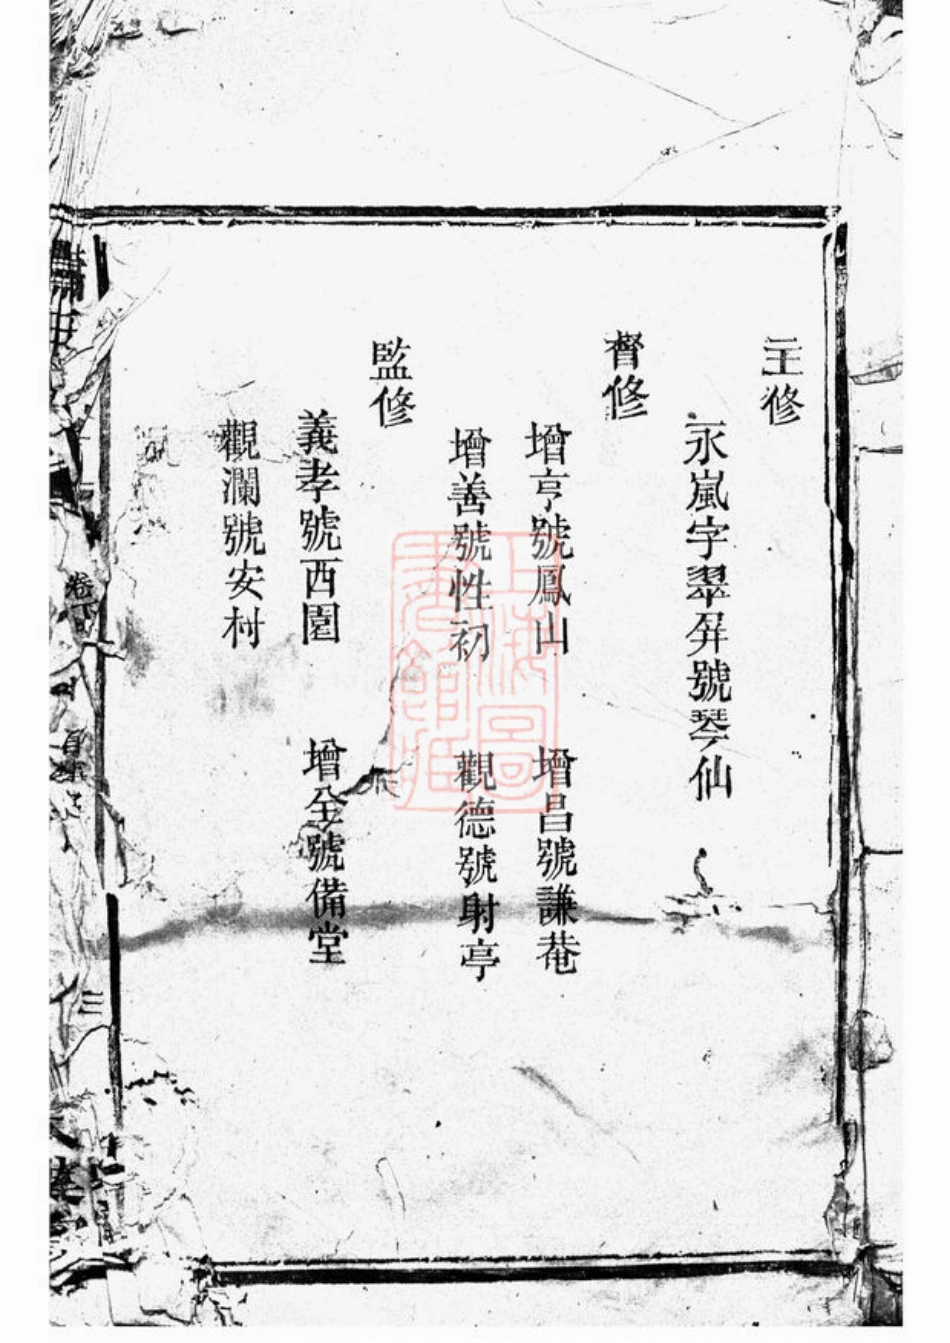 主修
永嵐字翠屏號琴仙
督修
增亨號鳳山　增昌號謙菴
增善號性初　觀德號射亭
監修
義孝號西園　增全號備堂
觀瀾號安村
卷下
三
上海圖書館藏